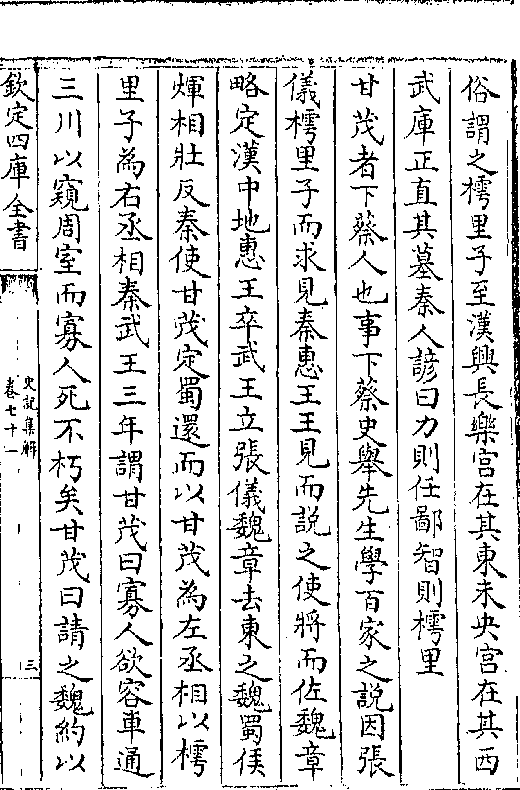 俗謂之樗里子至漢興長樂宮在其東未央宮在其西
武庫正直其墓秦人諺曰力則任鄙智則樗里
甘茂者下蔡人也事下蔡史舉先生學百家之説因張
儀樗里子而求見秦惠王王見而説之使將而佐魏章
略定漢中地惠王卒武王立張儀魏章去東之魏蜀侯
煇相壯反秦使甘茂定蜀還而以甘茂為左丞相以樗
里子為右丞相秦武王三年謂甘茂曰寡人欲容車通
三川以窺周室而寡人死不朽矣甘茂曰請之魏約以
欽定四庫全書
史記集解
卷七十一
三